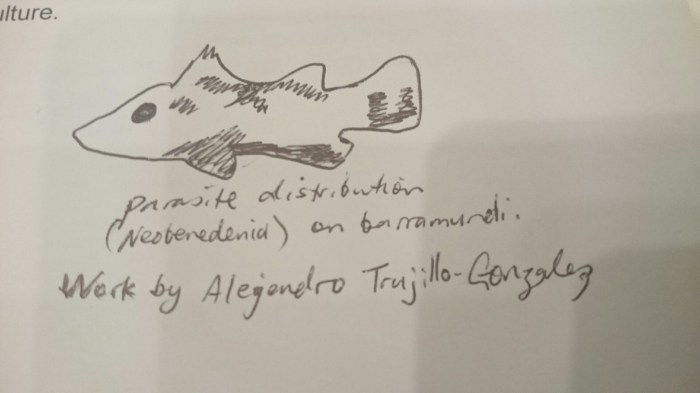 ulture.
parasite distribution
(Neobenedenia) on barramundi.
Work by Alejandro Trujillo-Gonzalez